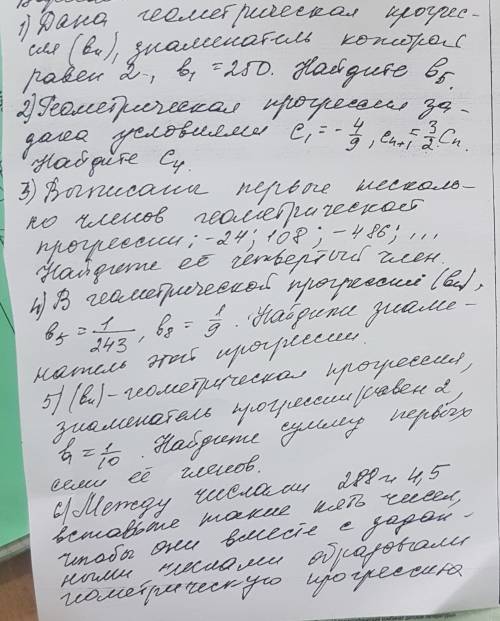 1) Дана геометрическая прогрес-
сия (bn), знаменатель которой
равен 2, b₁ = 250. Найдите b₅.
2) Геометрическая прогрессия за-
дана условиями c₁ = -4/9, cₙ₊₁ = 3/2 cₙ.
Найдите c₄.
3) Выписаны первые несколь-
ко членов геометрической
прогрессии: -24; 108; -486; ...
Найдите её четвёртый член.
4) В геометрической прогрессии (bn),
b₅ = 1/243, b₈ = 1/9. Найдите знаме-
натель этой прогрессии.
5) (bn) - геометрическая прогрессия,
знаменатель прогрессии равен 2,
b₁ = 1/10. Найдите сумму первых
семи её членов.
6) Между числами 288 и 4,5
вставьте такие пять чисел,
чтобы они вместе с задан-
ными числами образовали
геометрическую прогрессию